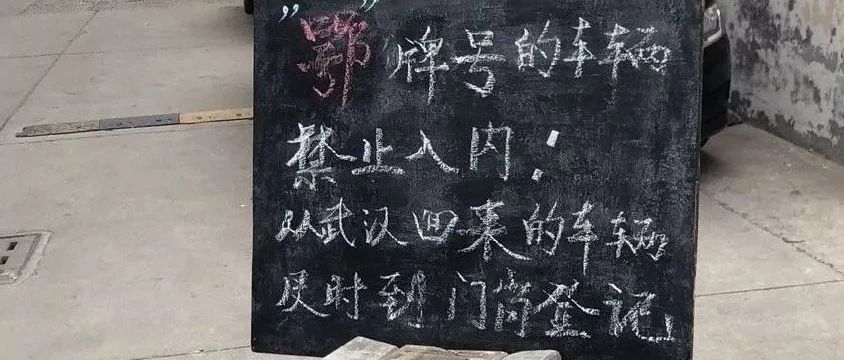 "鄂"牌号的车辆
禁止入内：
从武汉回来的车辆
及时到门岗登记。